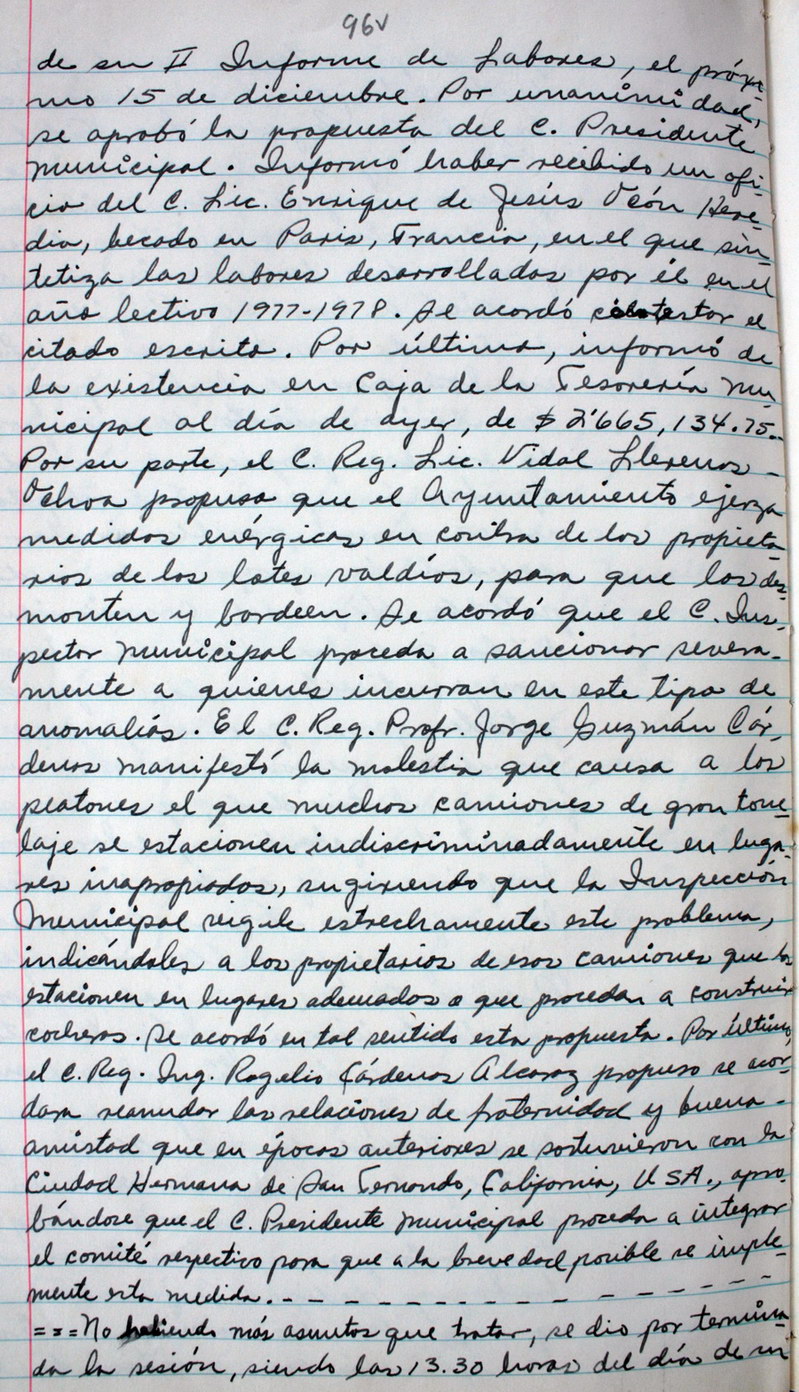 96v
de su II Informe de Labores, el próxi-
mo 15 de diciembre. Por unanimidad,
se aprobó la propuesta del C. Presidente
Municipal. Informó haber recibido un ofi-
cio del C. Lic. Enrique de Jesús Ocón Here-
dia, becado en Paris, Francia, en el que sin-
tetiza las labores desarrolladas por él en el
año lectivo 1977-1978. Se acordó contestar el
citado escrito. Por último, informó de
la existencia en Caja de la Tesorería Mu-
nicipal al día de ayer, de $ 2'665,134.75.-
Por su parte, el C. Reg. Lic. Vidal Llerenas -
Ochoa propuso que el Ayuntamiento ejerza
medidas enérgicas en contra de los propieta-
rios de los lotes valdíos, para que los des-
monten y bordeen. Se acordó que el C. Ins-
pector Municipal proceda a sancionar severa-
mente a quienes incurran en este tipo de
anomalías. El C. Reg. Profr. Jorge Guzmán Cár-
denas manifestó la molestia que causa a los
peatones el que muchos camiones de gran tone-
laje se estacionen indiscriminadamente en luga-
res inapropiados, sugiriendo que la Inspección
Municipal vigile estrechamente este problema,
indicándoles a los propietarios de esos camiones que los
estacionen en lugares adecuados o que procedan a construir
cocheras. Se acordó en tal sentido esta propuesta. Por último,
el C. Reg. Ing. Rogelio Cárdenas Alcaraz propuso se acor-
dara reanudar las relaciones de fraternidad y buena -
amistad que en épocas anteriores se sostuvieron con la
Ciudad Hermana de San Fernando, California, USA., apro-
bándose que el C. Presidente Municipal proceda a integrar
el comité respectivo para que a la brevedad posible se imple-
mente esta medida. - - - - - - - - - - - - -
=== No habiendo más asuntos que tratar, se dio por termina-
da la sesión, siendo las 13.30 horas del día de su